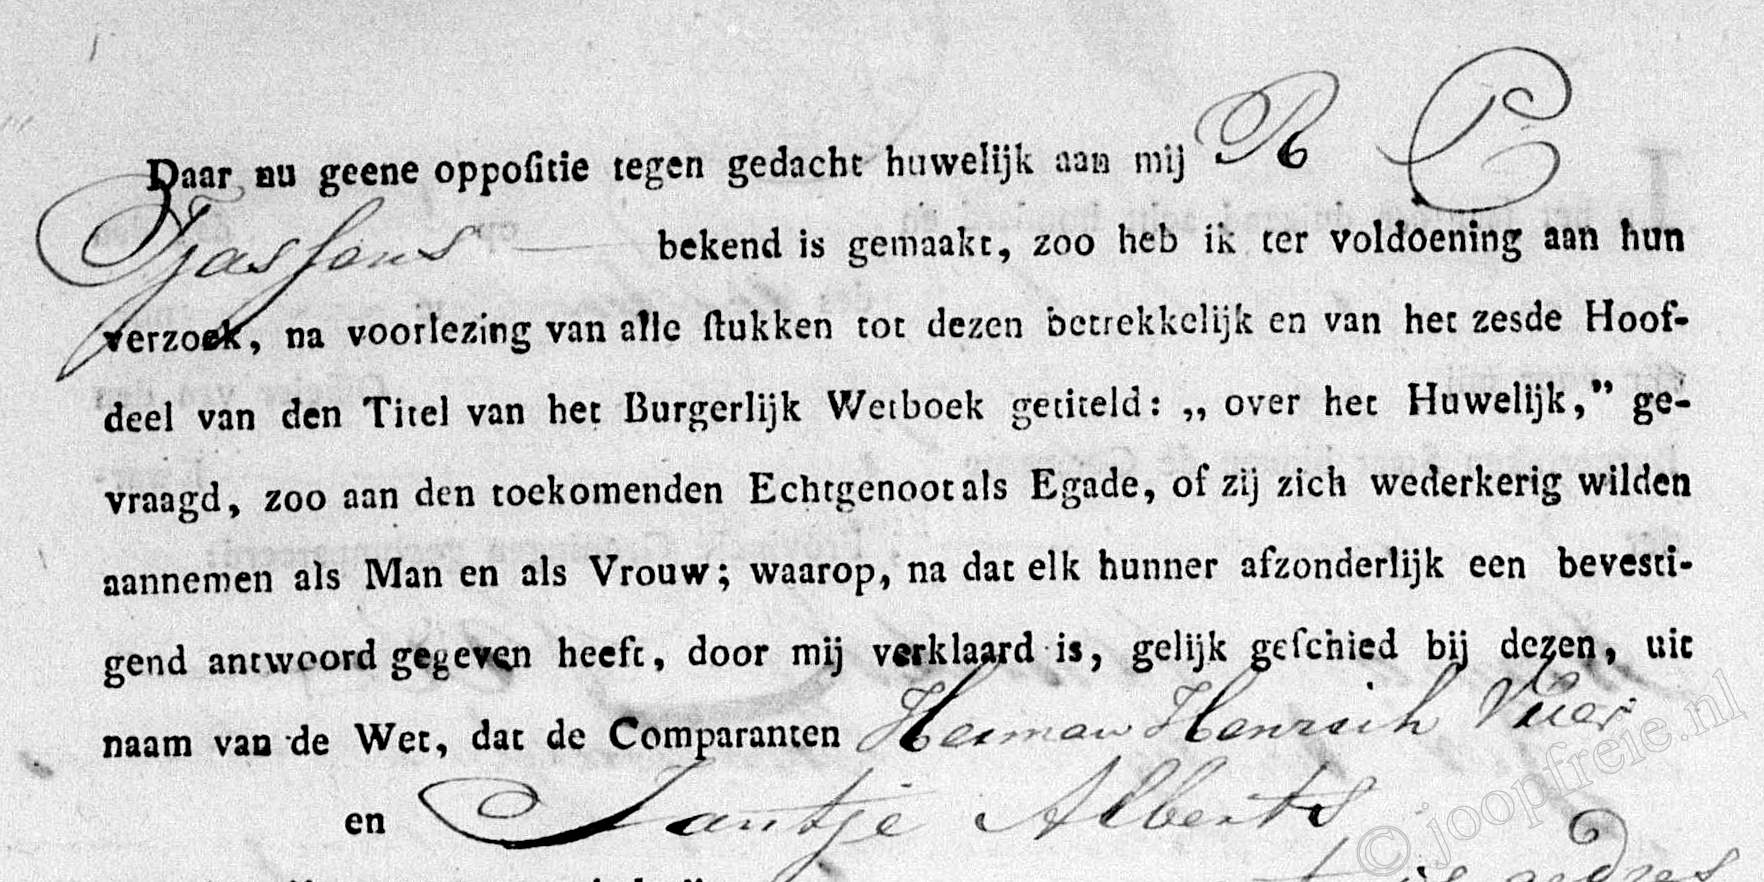 Daar nu geene oppoſitie tegen gedacht huwelijk aan mij R C
Tjassens bekend is gemaakt, zoo heb ik ter voldoening aan hun
verzoek, na voorlezing van alle ſtukken tot dezen betrekkelijk en van het zesde Hoof-
deel van den Titel van het Burgerlijk Wetboek getiteld: „ over het Huwelijk,” ge-
vraagd, zoo aan den toekomenden Echtgenoot als Egade, of zij zich wederkerig wilden
aannemen als Man en als Vrouw; waarop, na dat elk hunner afzonderlijk een bevesti-
gend antwoord gegeven heeft, door mij verklaard is, gelijk geſchied bij dezen, uit
naam van de Wet, dat de Comparanten Herman Henrich
en Jantje Alberts
© joopfreie.nl